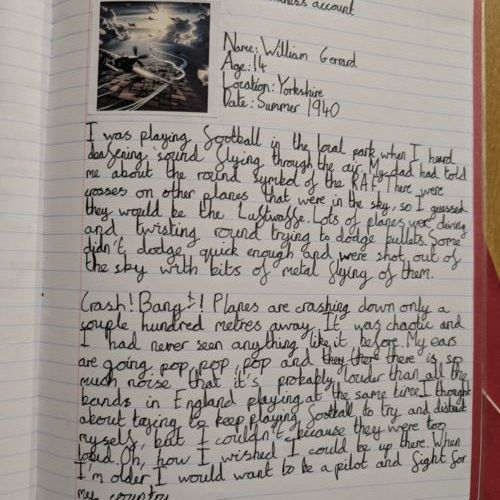 account
Name: William Gerrard
Age: 14
Location: Yorkshire
Date: Summer 1940
I was playing football in the local park when I heard
deafening sound flying through the air. My dad had told
me about the round symbol of the RAF. There were
crosses on other planes that were in the sky, so I guessed
they would be the Luftwaffe. Lots of planes were diving
and twisting round trying to dodge bullets. Some
didn't dodge quick enough and were shot out of
the sky with bits of metal flying of them.
Crash! Bang! Planes are crashing down only a
couple hundred metres away. It was chaotic and
I had never seen anything like it before. My ears
are going pop, pop, pop and they there there is so
much noise that it's probably louder than all the
bands in England playing at the same time. I thought
about trying to keep playing football to try and distract
myself, but I couldn't because they were too
loud. Oh, how I wished I could be up there. When
I'm older I would want to be a pilot and fight for
my country